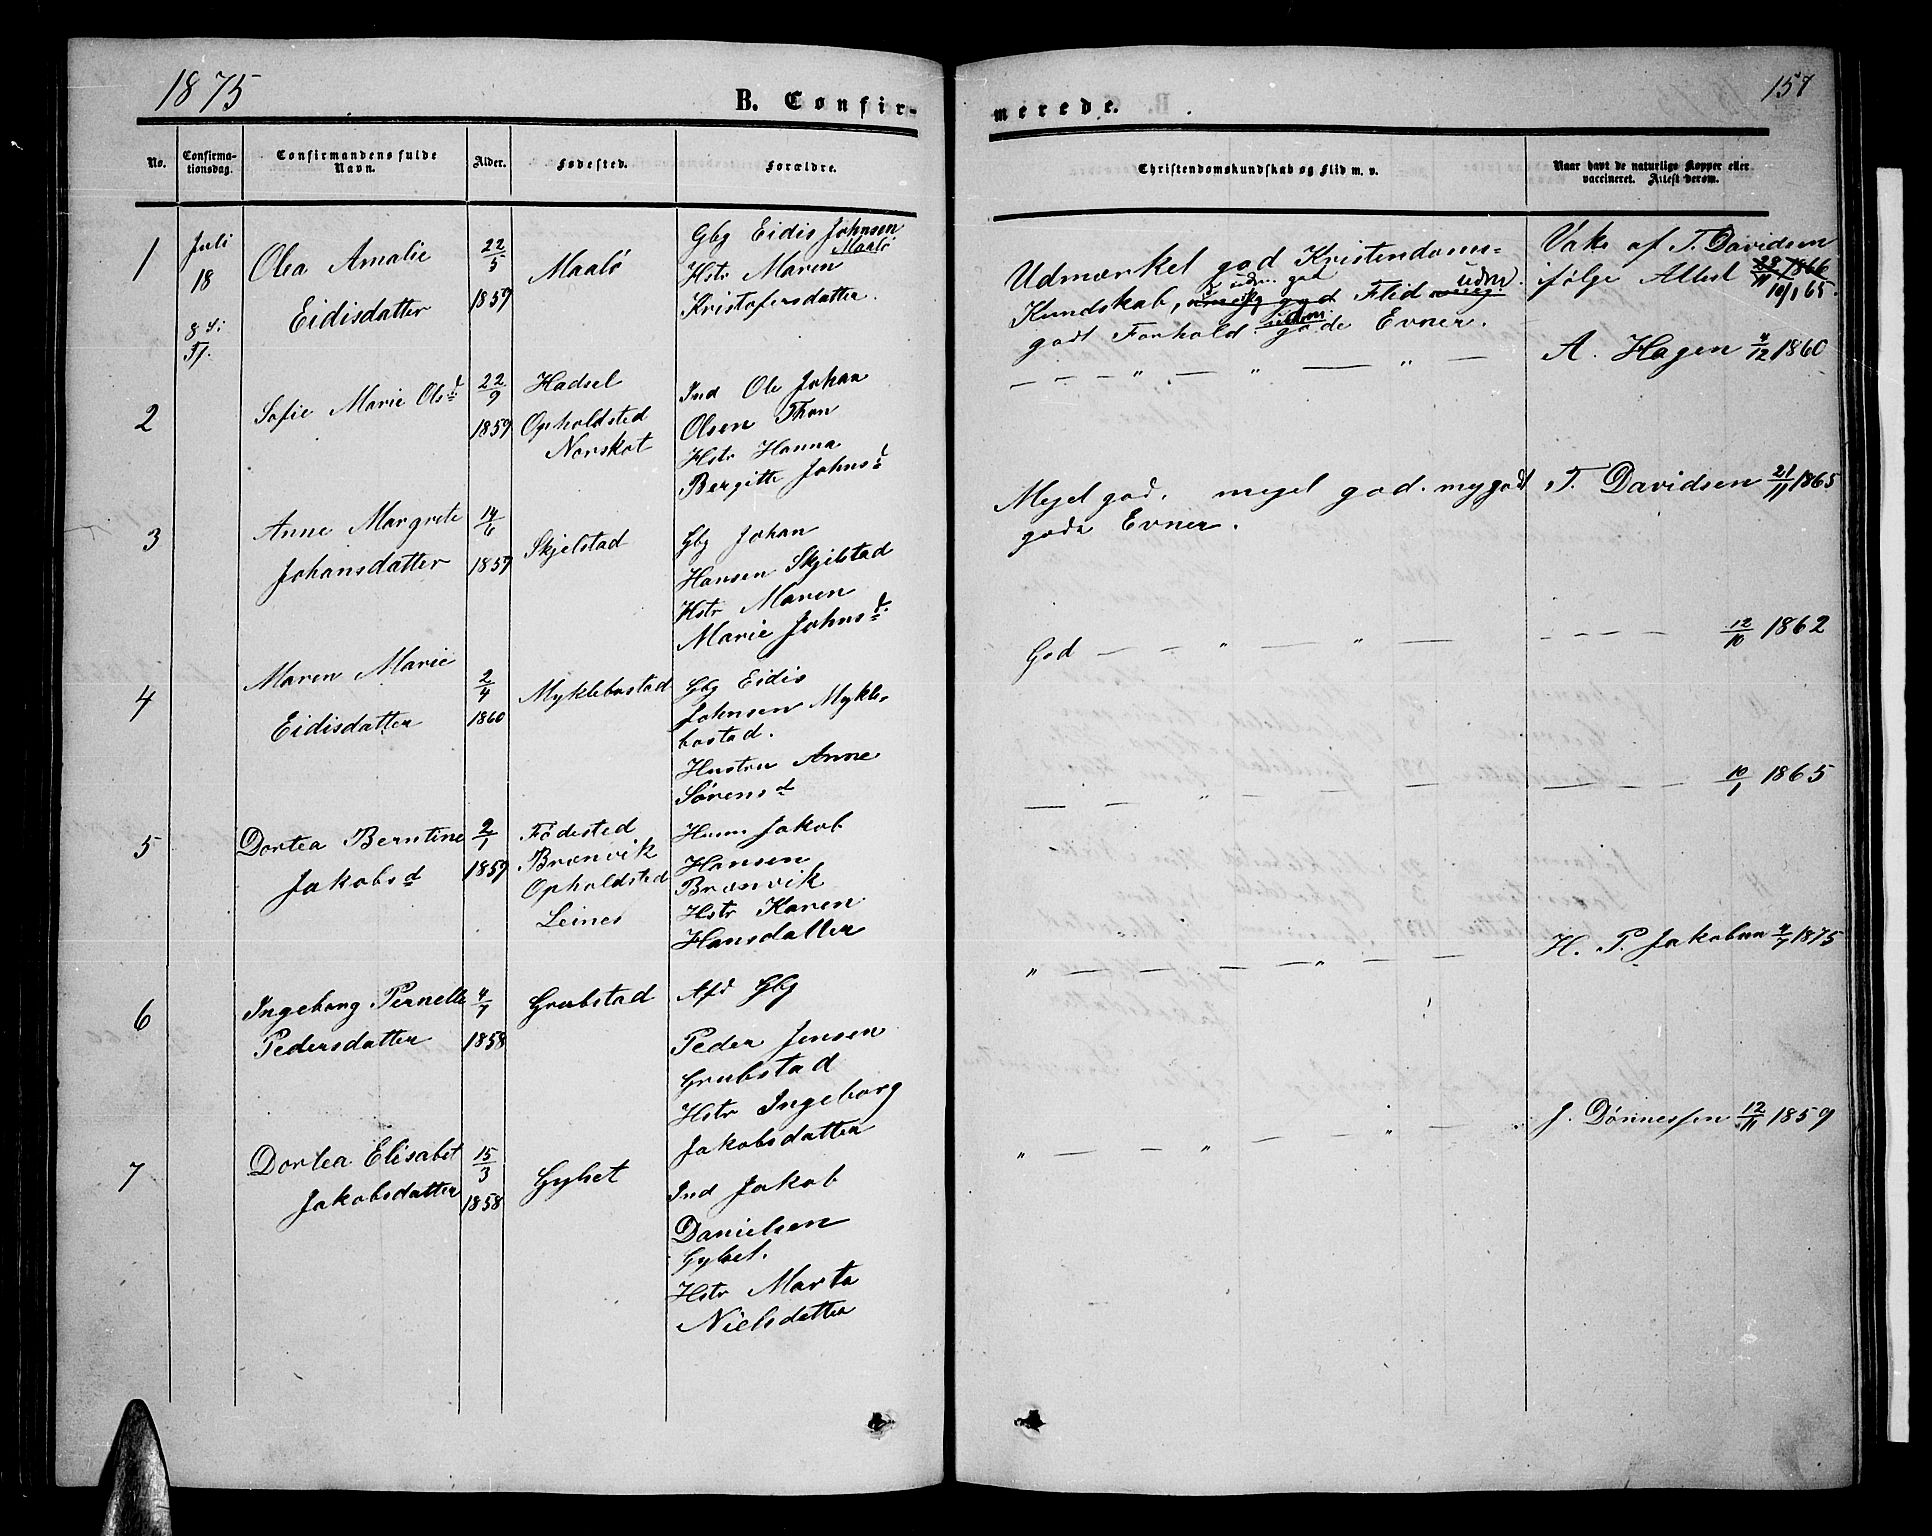 1875
B. Confir-
No.
Confirma-
tionsdag.
Confirmandens fulde
Navn.
Alder.
Fødested.
Forældre.
1
Juli
18
8 S. i
Tf.
Olea Amalie
Eidisdatter
22/5
1859
Maalø
Gbg Eidis Johnsen
Maalø
Hstr Maren
Kristofersdatter.
2
Sofie Marie Olsd
22/9
1859
Hadsel
Opholdsted
Norskot
Ind Ole Johan
Olsen Thon
Hstr Hanna
Bergitte Johnsd
3
Anne Margrete
Johansdatter
14/6
1859
Skjelstad
Gbg Johan
Hansen Skjelstad
Hstr Maren
Marie Johnsd
4
Maren Marie
Eidisdatter
2/4
1860
Myklebostad
Gbg Eidis
Johnsen Mykle-
bostad.
Hustru Anne
Sørensd
5
Dortea Berntine
Jakobsd
2/1
1859
Fødested
Brænvik
Opholdsted
Leines
Huusm Jakob
Hansen
Brænvik
Hstr Karen
Hansdatter
6
Ingeborg Pernelle
Pedersdatter
4/7
1858
Grubstad
Afd Gbg
Peder Jensen
Grubstad
Hstr Ingeborg
Jakobsdatter
7
Dortea Elisabet
Jakobsdatter
15/3
1858
Gylset
Ind Jakob
Danielsen
Gylset.
Hstr Marta
Nielsdatter
157
merede.
Christendomskundskab og Flid m. v.
Naar havt de naturlige Kopper eller
vaccineret. Attest derom.
Udmærket god Kristendoms-
Kundskab, udm. god Flid udm.
godt Forhold. gode Evner.
Vaks af T. Davidsen
ifølge Attest 28/11 1866
10/1 65.
— — — " — " — " —
A. Hagen 4/12 1860
Meget god. meget god. meg godt
gode Evner.
T. Davidsen 21/11 1865
God — — " — " —
— — — — 12/10 1862
— — " — — —
— — — — 10/1 1865
" — — — — " — —
H. P. Jakobsen 4/7 1875
" — — " — — " —
J. Dønnessen 12/11 1859